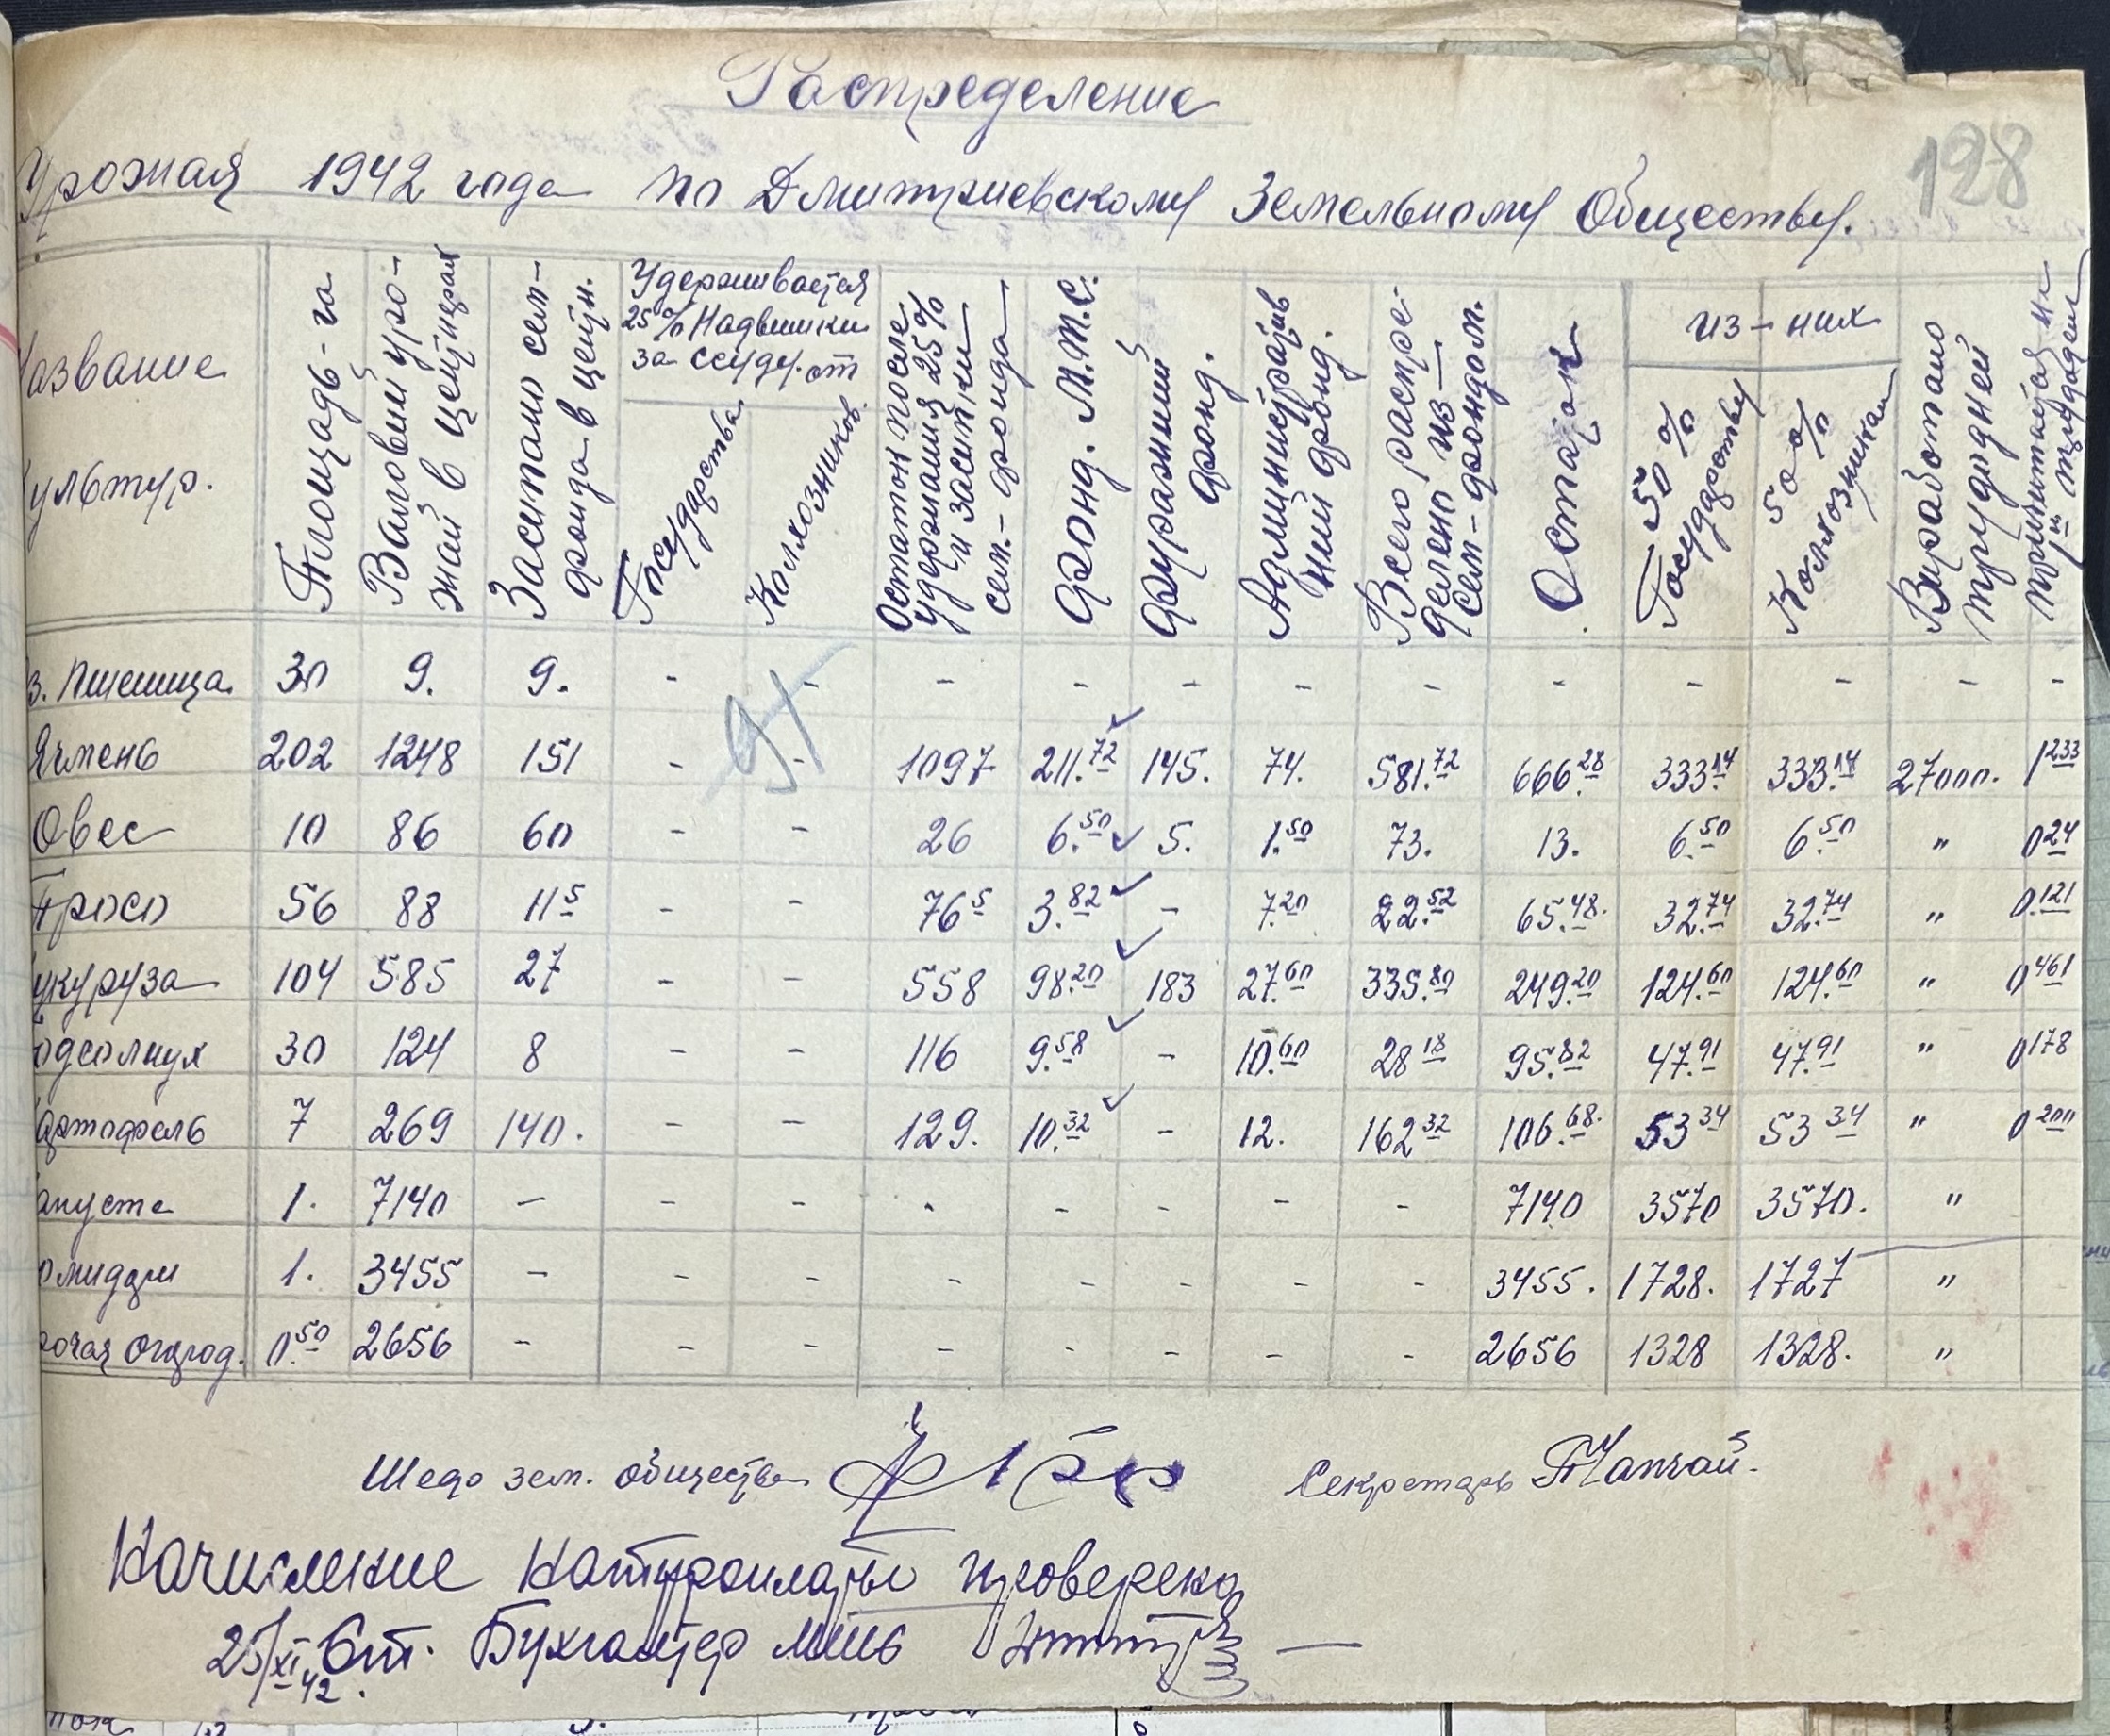 Распределение
Урожая 1942 года по Дмитриевскому Земельному Обществу.
128
Название Культур.
Площадь-га
Валовый уро-
жай в центнерах
Засыпано сем-
фонда в центн.
Удерживается
25% Надбишки
за ссуду от
Государства
Колхозников.
Остаток после
удержания 25%
и засыпки
сем.-фонда
Фонд. М.Т.С.
фуражний
фонд.
Административ
ний фонд.
Всего распре-
делено из
Сем-фондом.
Остаток
из-них
50%
Государству
50%
Колхозникам
Виработано
трудодней
причитается на
1н трудодень
з. пшеница 30 9. 9. - - - - - - - - - - - -
Ячмень 202 1248 151 - - 1097 211.72 145. 74. 581.72 666.28 333.14 333.14 27000. 1233
Овес 10 86 60 - - 26 6.50 5. 1.50 73. 13. 6.50 6.50 " 024
Просо 56 88 115 - - 765 3.82 - 7.20 22.52 65.48. 32.74 32.74 " 0.121
укуруза 104 585 27 - - 558 98.20 183 27.60 335.80 249.20 124.60 124.60 " 0461
одсолнух 30 124 8 - - 116 9.58 - 10.60 28 18 95.82 47.91 47.91 " 0178
артофель 7 269 140. - - 129. 10.32 - 12. 162 32 106.68. 53 34 53 34 " 0200
апуста 1. 7140 - - - - - - - - 7140 3570 3570. "
омидори 1. 3455 - - - - - - - - 3455. 1728. 1727 "
рочая огород. 0.50 2656 - - - - - - - - 2656 1328 1328. "
Шеф зем. общества
Секретарь
Начисление натуроплаты проверено
25/XI 42. Ст. Бухгалтер МТС